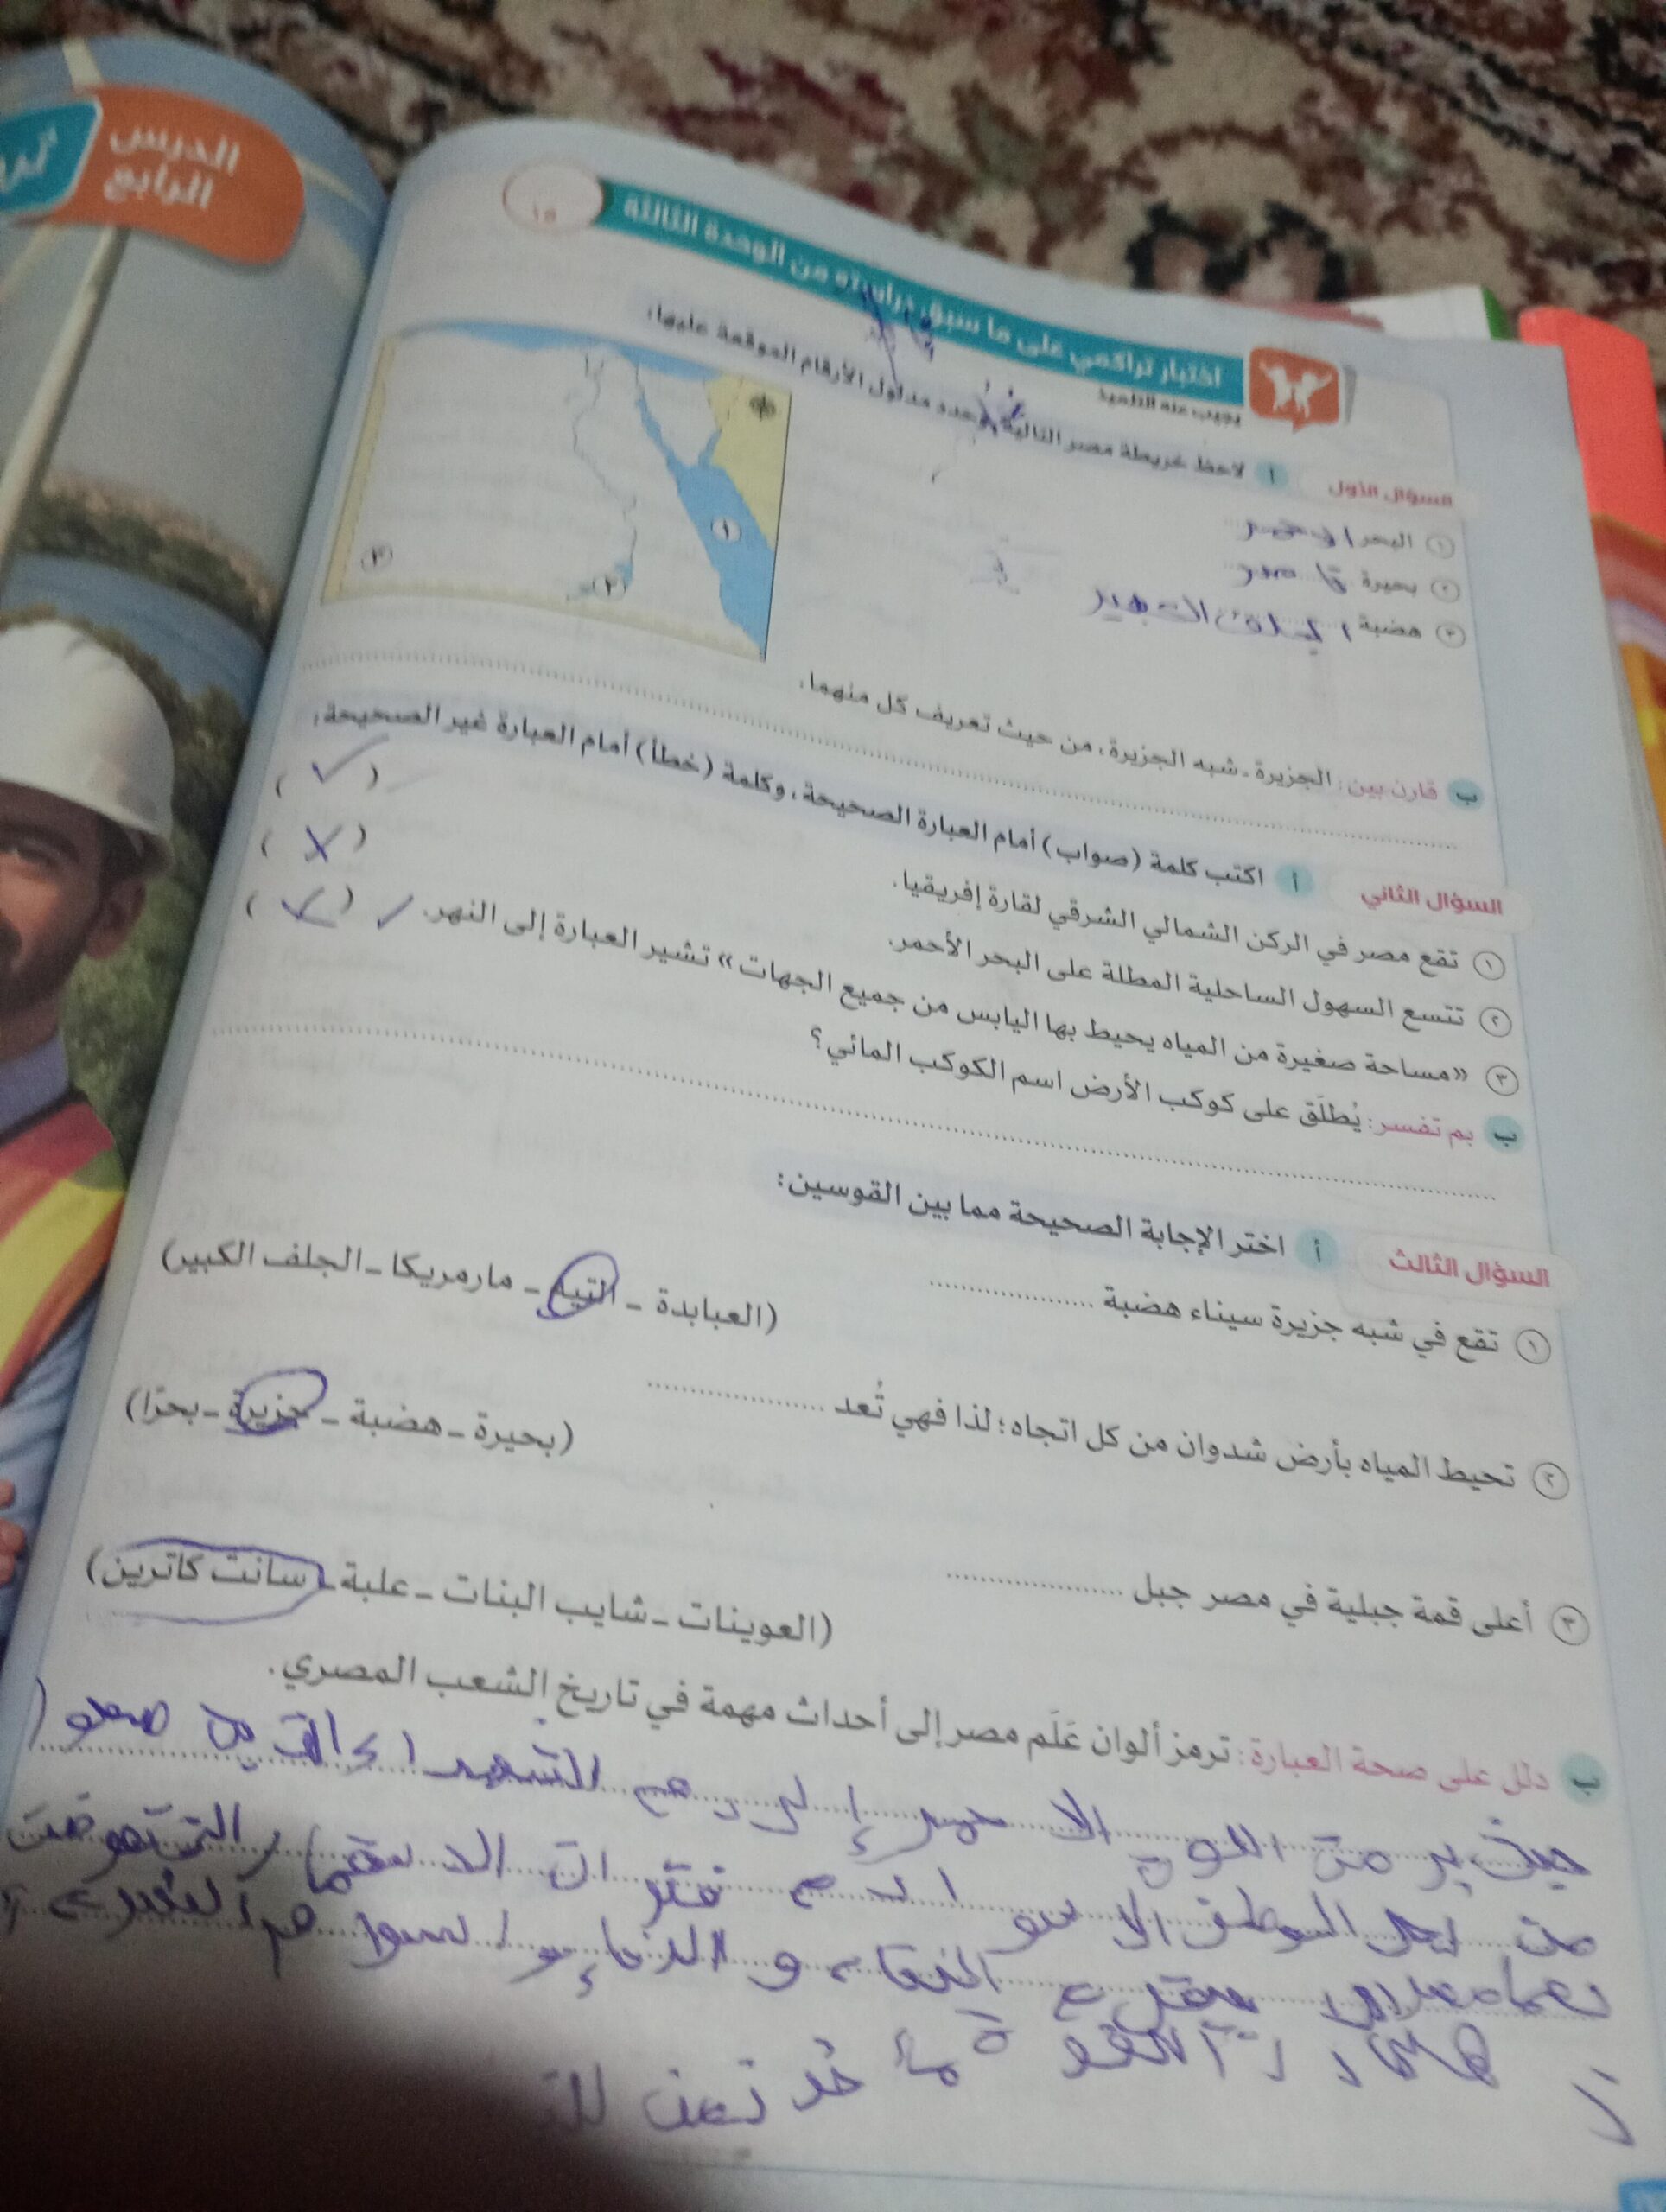 الدرس
الرابع
١٥
اختبار تراكمي على ما سبق دراسته من الوحدة الثالثة
يجيب عنه التلميذ
السؤال الأول
أ لاحظ خريطة مصر التالية، وحدد مدلول الأرقام الموقعة عليها:
١ البحر الاحمر
٢ بحيرة ناصر
٣ هضبة الجلف الكبير
١
٢
٣
ب قارن بين: الجزيرة - شبه الجزيرة، من حيث تعريف كل منهما.
السؤال الثاني
أ اكتب كلمة (صواب) أمام العبارة الصحيحة، وكلمة (خطأ) أمام العبارة غير الصحيحة:
١ تقع مصر في الركن الشمالي الشرقي لقارة إفريقيا. (✓)
٢ تتسع السهول الساحلية المطلة على البحر الأحمر. (✗)
٣ «مساحة صغيرة من المياه يحيط بها اليابس من جميع الجهات» تشير العبارة إلى النهر.
ب بم تفسر: يُطلَق على كوكب الأرض اسم الكوكب المائي؟
السؤال الثالث
أ اختر الإجابة الصحيحة مما بين القوسين:
١ تقع في شبه جزيرة سيناء هضبة ....................
(العبابدة - التيه - مارمريكا - الجلف الكبير)
٢ تحيط المياه بأرض شدوان من كل اتجاه؛ لذا فهي تُعد ....................
(بحيرة - هضبة - جزيرة - بحرًا)
٣ أعلى قمة جبلية في مصر جبل ....................
(العوينات - شايب البنات - علبة - سانت كاترين)
ب دلل على صحة العبارة: ترمز ألوان عَلَم مصر إلى أحداث مهمة في تاريخ الشعب المصري.
حيث الاحمر إلى دم الشهداء
من اجل الوطن فترات
النقاء و